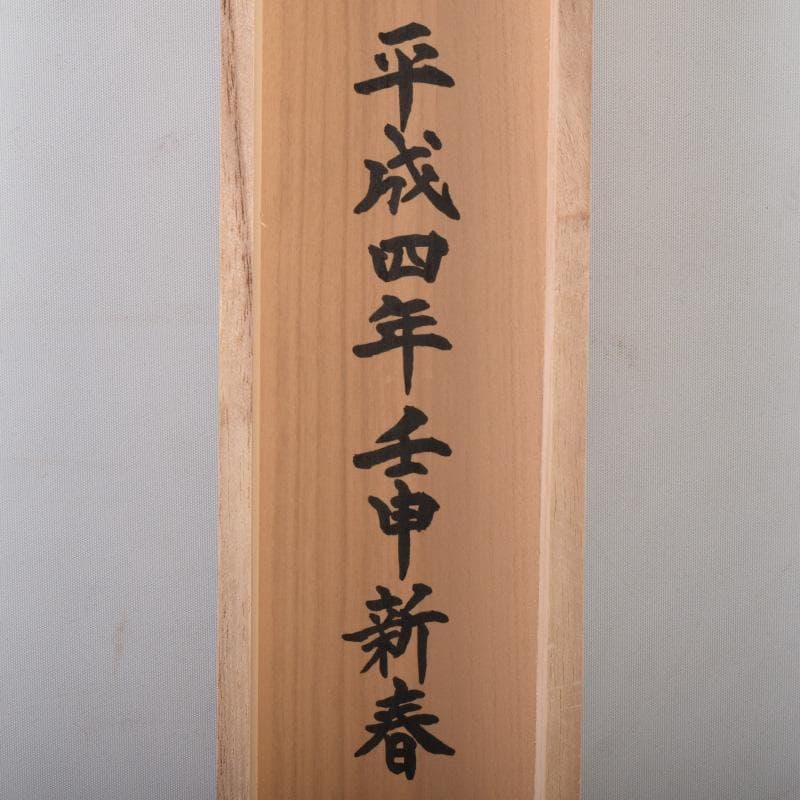 平成四年壬申新春